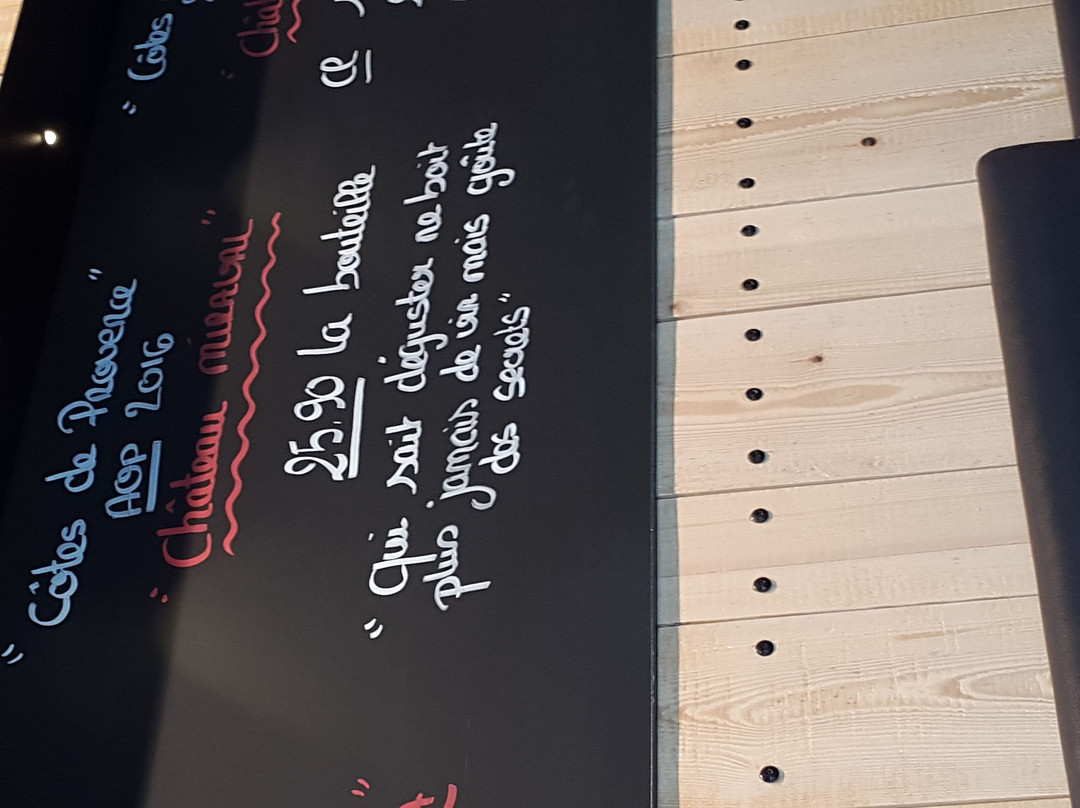 "Côtes de Provence"
AOP 2016
"Château MIRAVAL"
25,90 la bouteille
"Qui sait déguster ne boit
plus jamais de vin mais goûte
des secrets"
"Côtes
"Chât